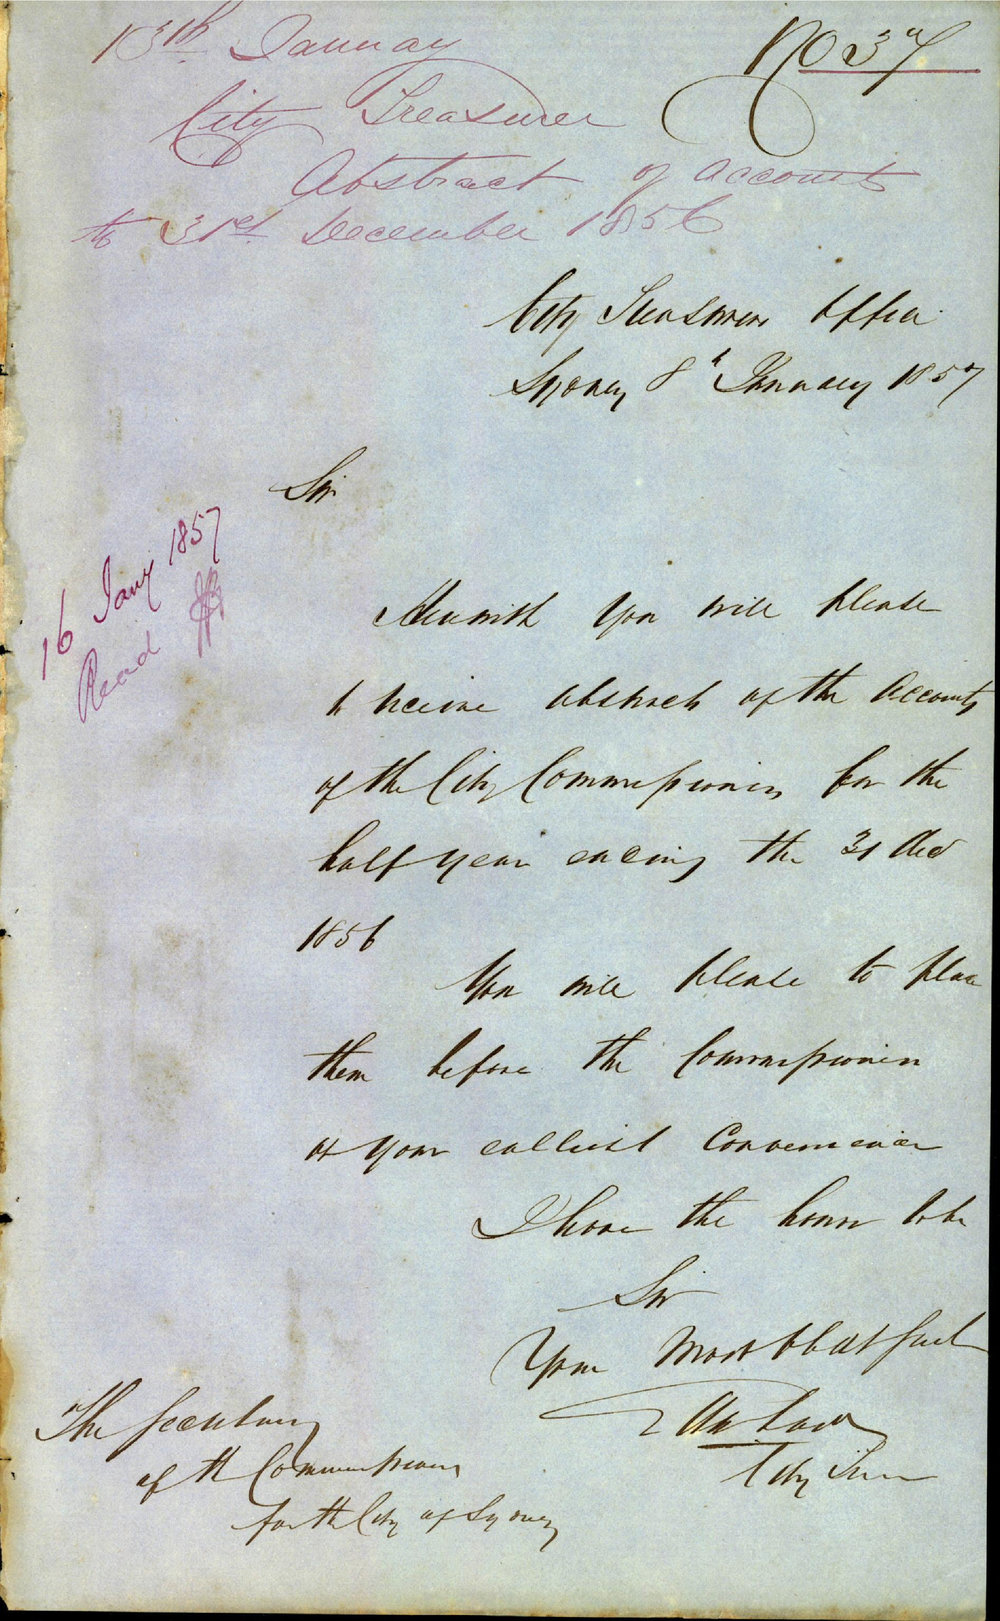 No 37
13th January
City Treasurer
Abstract of accounts
to 31st December 1856
City Treasurers Office
Sydney 8th January 1857
Sir
16 Jany 1857
Read
Herewith you will please
to receive abstracts of the Accounts
of the City Commissioners for the
half year ending the 31 Dec
1856
You will please to place
them before the Commissioners
at your earliest Convenience
I have the honor to be
Sir
Your Most Obdt
City Treas
The Secretary
of the Commissioners
for the City of Sydney